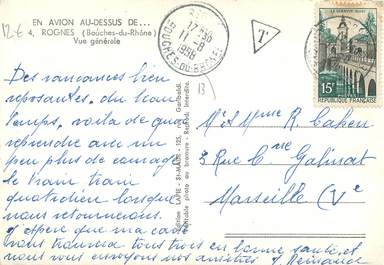 EN AVION AU-DESSUS DE...
4, ROGNES (Bouches-du-Rhône)
Vue générale
12 €
17 H 30
11 - 8
1958
BOUCHES-DU-RHÔNE
T
15F
13
Des vacances bien
reposantes, du beau
temps, voila de quoi
reprendre avec un
peu plus de courage
le train train
quotidien lorsque
nous retournerons.
J'espère que ma carte
vous trouvera tous trois en bonne santé, et
nous vous envoyons nos amitiés.
Mr et Mme R. Cahen
3 Rue Cne Galinat
Marseille (Ve
Edition LAPIE - St-MAUR - 125, rue Garibaldi
Véritable photo au bromure - Reprod. interdite.